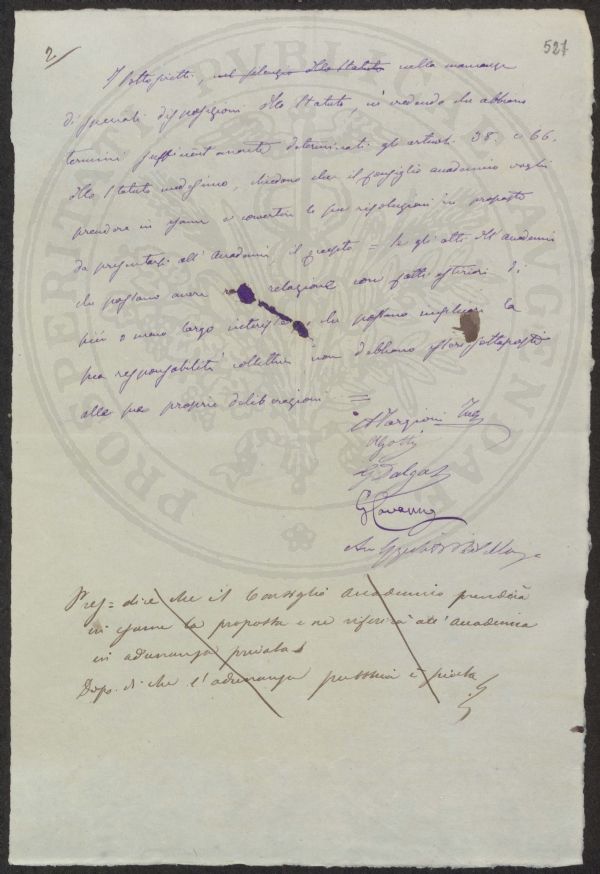 2/
527
I sottoscritti, nel silenzio dello Statuto nella mancanza
di speciali disposizioni dello Statuto, e credendo che abbiano
termini sufficientemente determinati gli articoli 38. e 66.
dello Statuto medesimo, chiedono che il Consiglio accademico voglia
prendere in esame e convertire le sue risoluzioni in proposte
da presentarsi all' Accademia il quesito = Se gli atti dell' Accademia
che possano avere relazione con fatti esteriori di
più o meno largo interesse, che possano implicare la
sua responsabilità collettiva non debbano essere sottoposti
alle sue proprie deliberazioni =
Pres= dice che il Consiglio Accademico prenderà
in esame la proposta e ne riferirà all' Accademia
in adunanza privata
Dopo di che l'adunanza pubblica è sciolta
PROSPERITATI PVBLICAE AVGENDAE